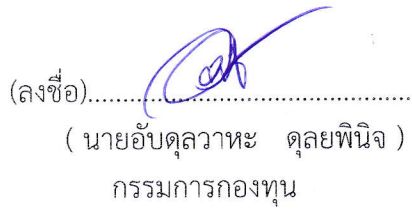 (ลงชื่อ)........................................
( นายอับดุลวาหะ ดุลยพินิจ )
กรรมการกองทุน